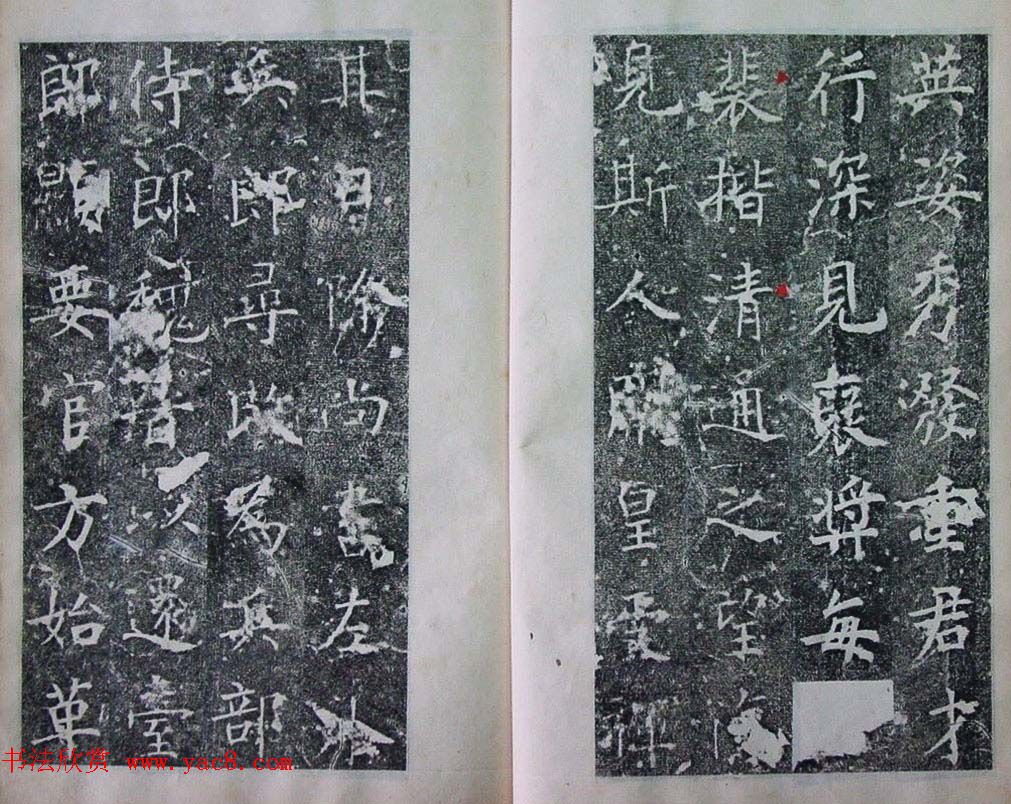 英姿秀發重君才
行深見襃奬每
裴楷清通之望復
見斯人爾皇受禅
其日除尚書左丞
吳郎尋改爲兵部
侍郎魏晉以還臺
郎顯要官方始革
书法欣赏 www.yac8.com